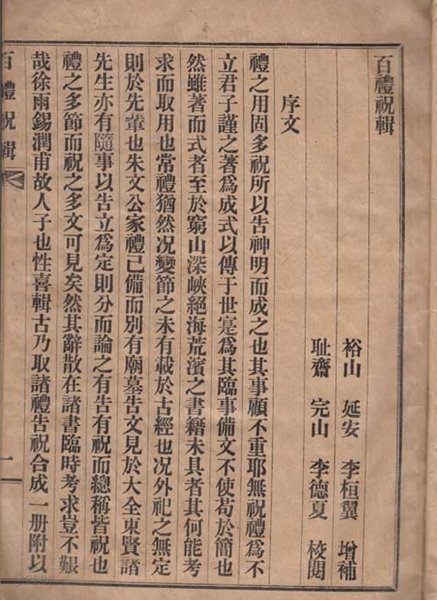 百禮祝輯
裕山 延安 李桓翼 增補
耻齋 完山 李德夏 校閱
序文
禮之用固多祝所以告神明而成之也其事顧不重耶無祝禮爲不
立君子謹之著爲成式以傳于世寔爲其臨事備文不使苟於簡也
然雖著而式者至於窮山深峽絕海荒濱之書籍未具者其何能考
求而取用也常禮猶然况變節之未有載於古經也况外祀之無定
則於先輩也朱文公家禮已備而別有廟墓告文見於大全東賢諸
先生亦有隨事以告立爲定則分而論之有告有祝而總稱皆祝也
禮之多節而祝之多文可見矣然其辭散在諸書臨時考求豈不艱
哉徐雨錫潤甫故人子也性喜輯古乃取諸禮告祝合成一册附以
百禮祝輯 一